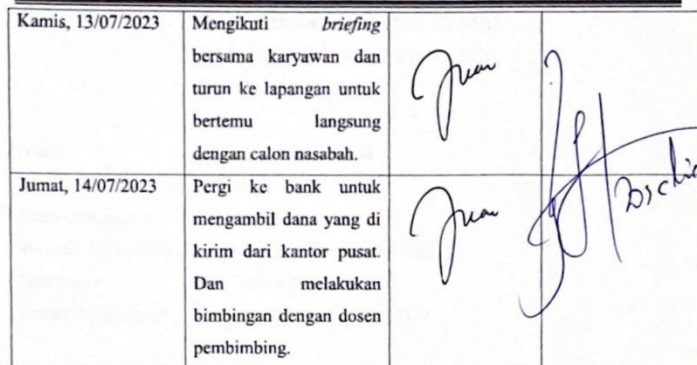 Kamis, 13/07/2023
Mengikuti briefing
bersama karyawan dan
turun ke lapangan untuk
bertemu langsung
dengan calon nasabah.
Jumat, 14/07/2023
Pergi ke bank untuk
mengambil dana yang di
kirim dari kantor pusat.
Dan melakukan
bimbingan dengan dosen
pembimbing.